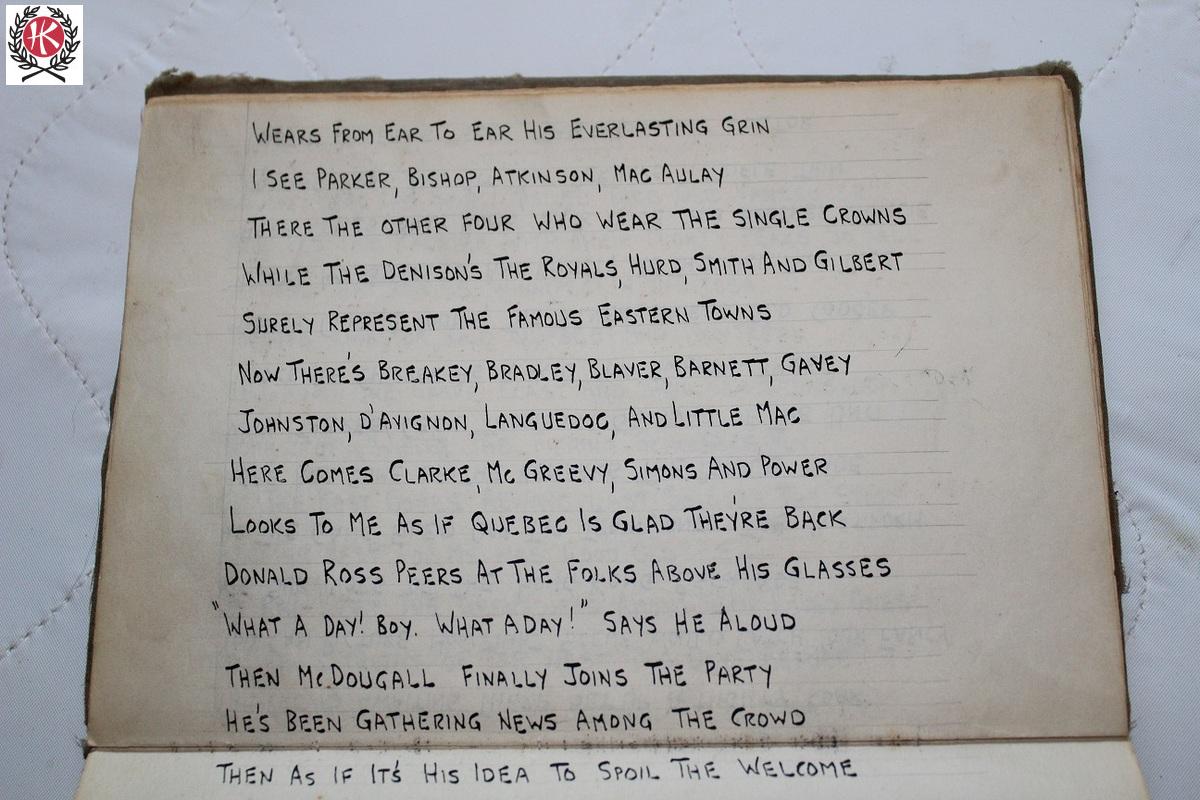 HK
WEARS FROM EAR TO EAR HIS EVERLASTING GRIN
I SEE PARKER, BISHOP, ATKINSON, MAC AULAY
THERE THE OTHER FOUR WHO WEAR THE SINGLE CROWNS
WHILE THE DENISON'S THE ROYALS, HURD, SMITH AND GILBERT
SURELY REPRESENT THE FAMOUS EASTERN TOWNS
NOW THERE'S BREAKEY, BRADLEY, BLAVER, BARNETT, GAVEY
JOHNSTON, D'AVIGNON, LANGUEDOC, AND LITTLE MAC
HERE COMES CLARKE, MC GREEVY, SIMONS AND POWER
LOOKS TO ME AS IF QUEBEC IS GLAD THEY'RE BACK
DONALD ROSS PEERS AT THE FOLKS ABOVE HIS GLASSES
"WHAT A DAY! BOY. WHAT A DAY!" SAYS HE ALOUD
THEN MCDOUGALL FINALLY JOINS THE PARTY
HE'S BEEN GATHERING NEWS AMONG THE CROWD
THEN AS IF IT'S HIS IDEA TO SPOIL THE WELCOME